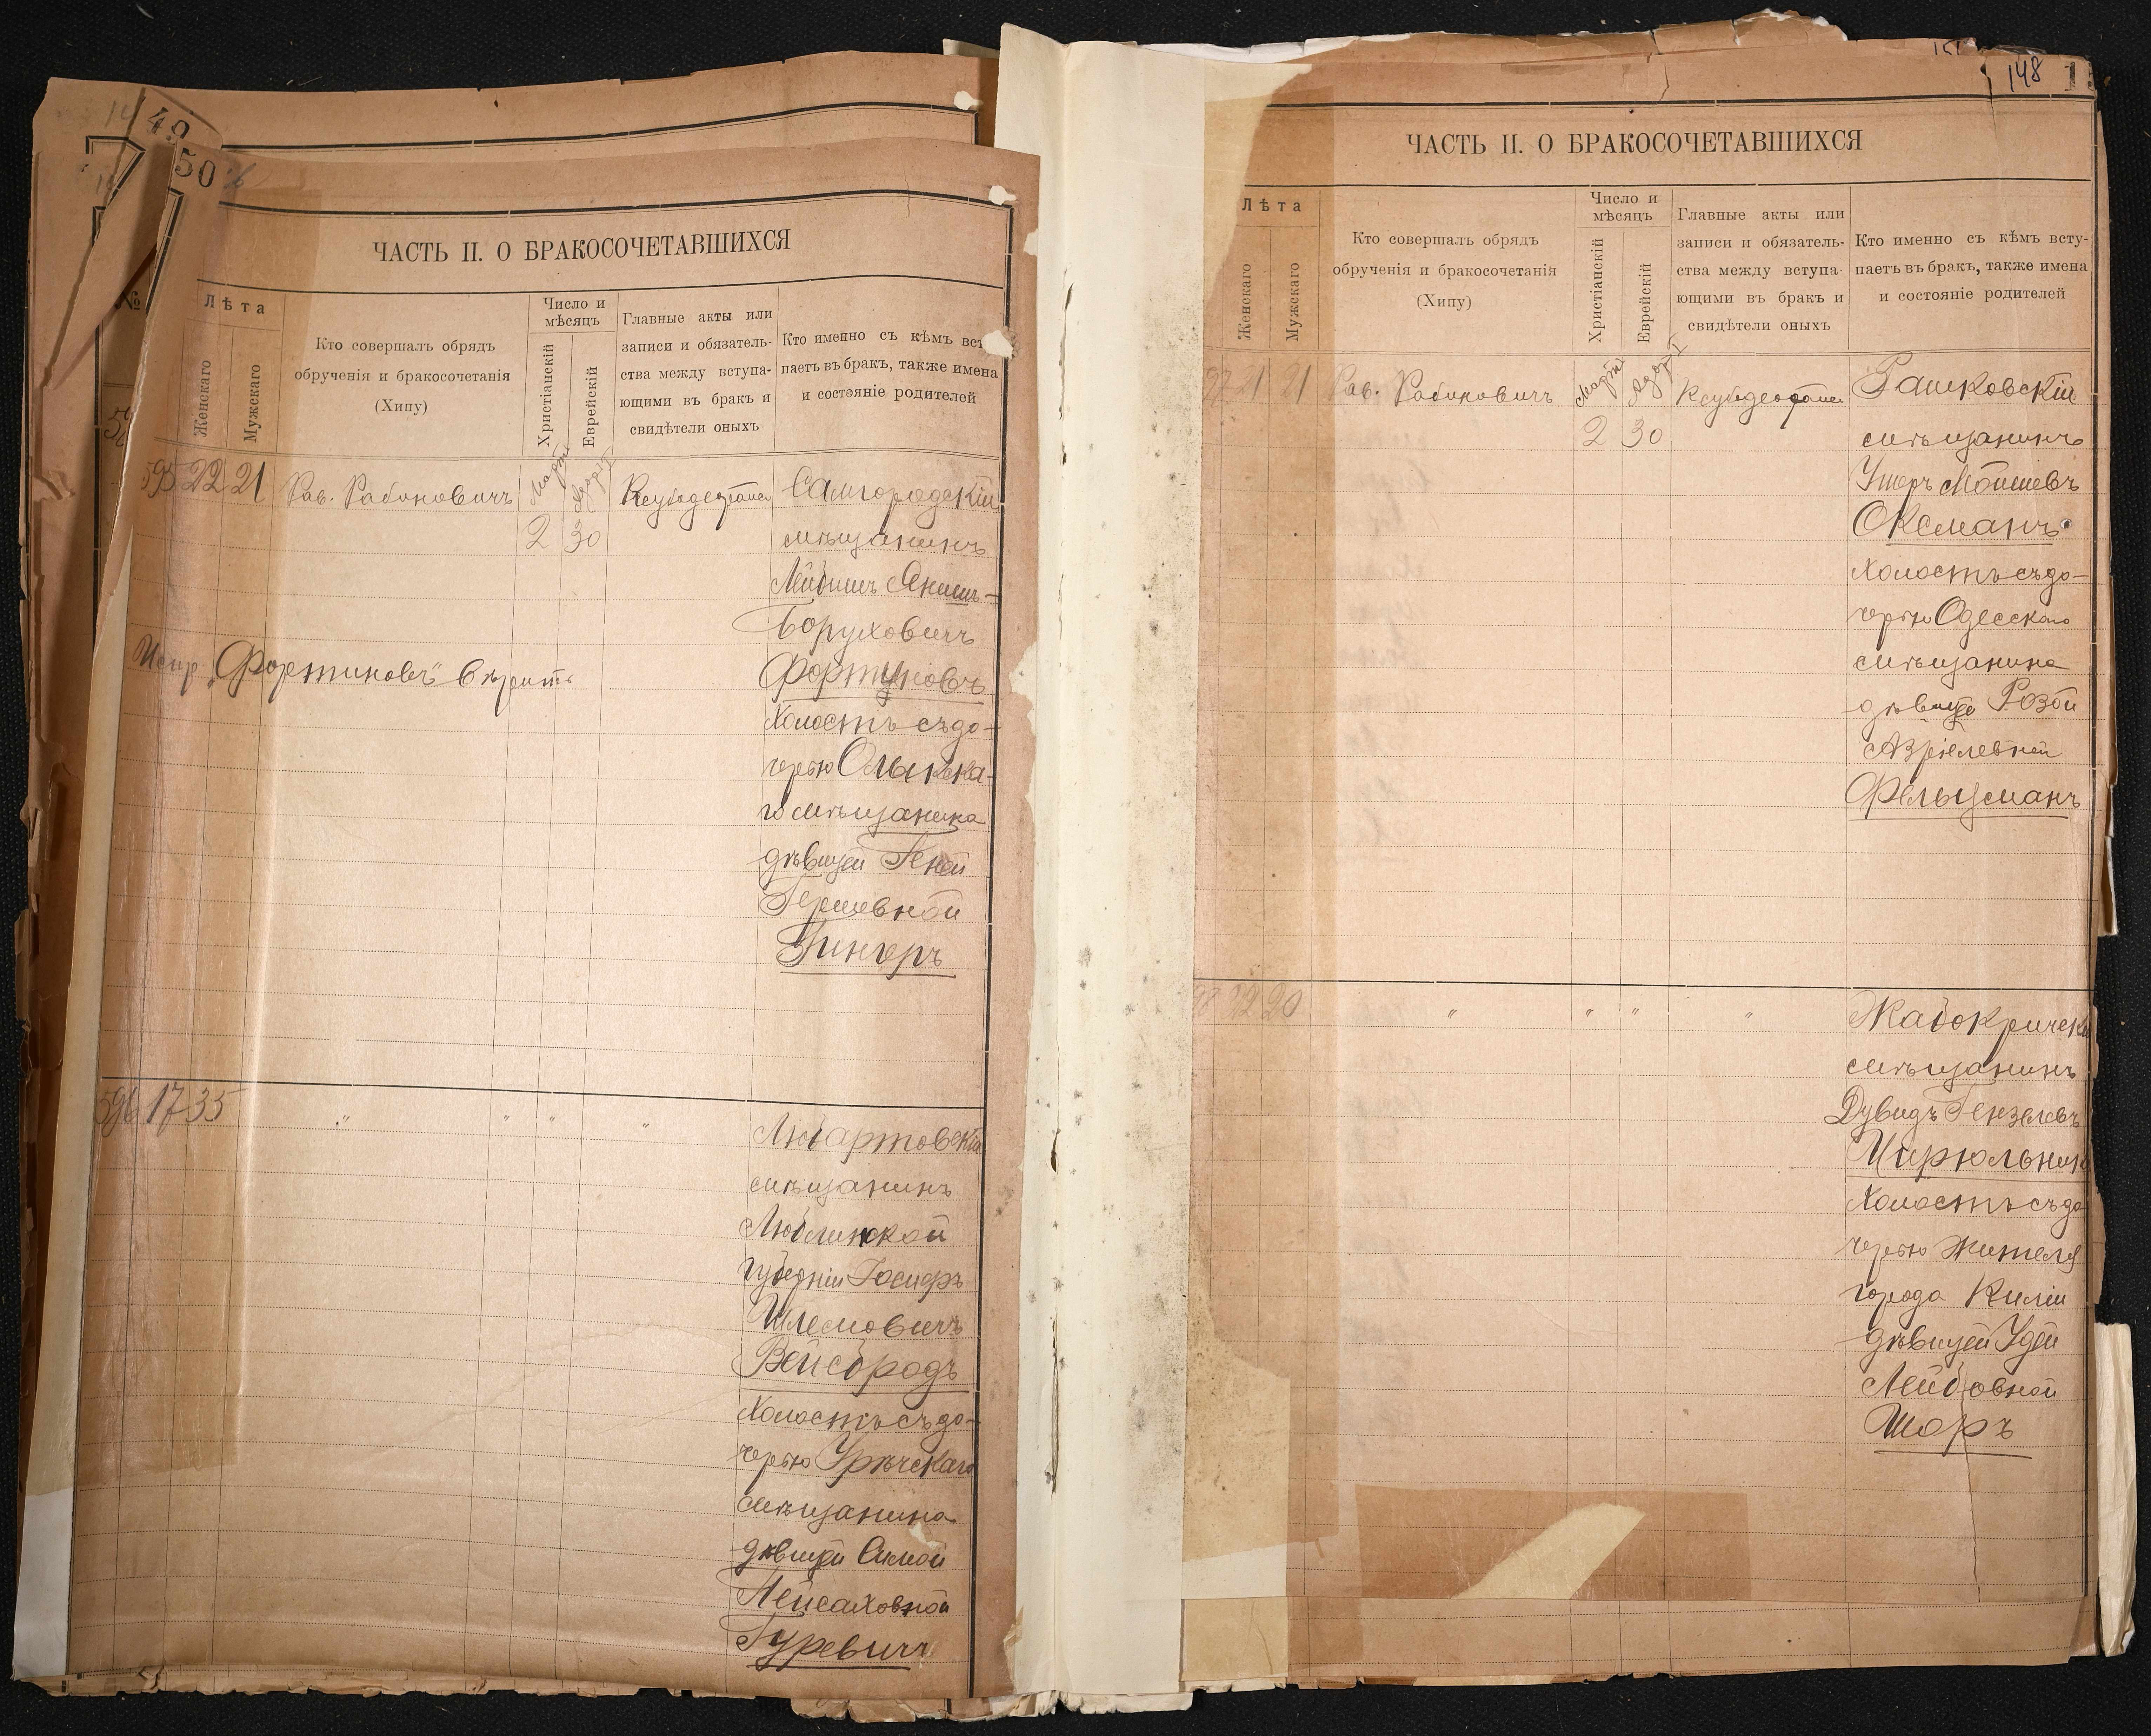 49
50
ЧАСТЬ II. О БРАКОСОЧЕТАВШИХСЯ
№
Лѣта
Женскаго
Мужскаго
Кто совершалъ обрядъ
обрученія и бракосочетанія
(Хипу)
Число и
мѣсяцъ
Христіанскій
Еврейскій
Главные акты или
записи и обязатель-
ства между вступа-
ющими въ бракъ и
свидѣтели оныхъ
Кто именно съ кѣмъ всту
паетъ въ бракъ, также имена
и состояніе родителей
595 22 21 Рав. Рабиновичъ Мартъ Адаръ I Самгородскій
2 30 мѣщанинъ
Лейбишъ
Боруховичъ
Испр. „Фортиновъ" вѣрить Фортуновъ
холостъ съ до-
черью Олыкска-
го мѣщанина
дѣвицей Геней
Гершевной
Гингеръ
596 17 35 " " " " Любартовскій
мѣщанинъ
Люблинской
губерніи Іосифъ
Шлемовичъ
Вейсбродъ
холостъ съ до-
черью Урѣчскаго
мѣщанина
дѣвицей Симой
Пейсаховной
Гуревичъ
148
ЧАСТЬ II. О БРАКОСОЧЕТАВШИХСЯ
Лѣта
Женскаго
Мужскаго
Кто совершалъ обрядъ
обрученія и бракосочетанія
(Хипу)
Число и
мѣсяцъ
Христіанскій
Еврейскій
Главные акты или
записи и обязатель-
ства между вступа-
ющими въ бракъ и
свидѣтели оныхъ
Кто именно съ кѣмъ всту-
паетъ въ бракъ, также имена
и состояніе родителей
97 21 21 Рав. Рабиновичъ Мартъ Адаръ I Рашковскій
2 30 мѣщанинъ
Ушеръ Мошиевъ
Оксманъ
холостъ съ до-
черью Одесскаго
мѣщанина
дѣвицей Розой
Азріелевной
Фельцманъ
98 22 20 " " " " Жабокричскій
мѣщанинъ
Дувидъ Гензелевъ
Цирюльникъ
холостъ съ до
черью жителя
города Киліи
дѣвицей Удей
Лейбовной
Шоръ